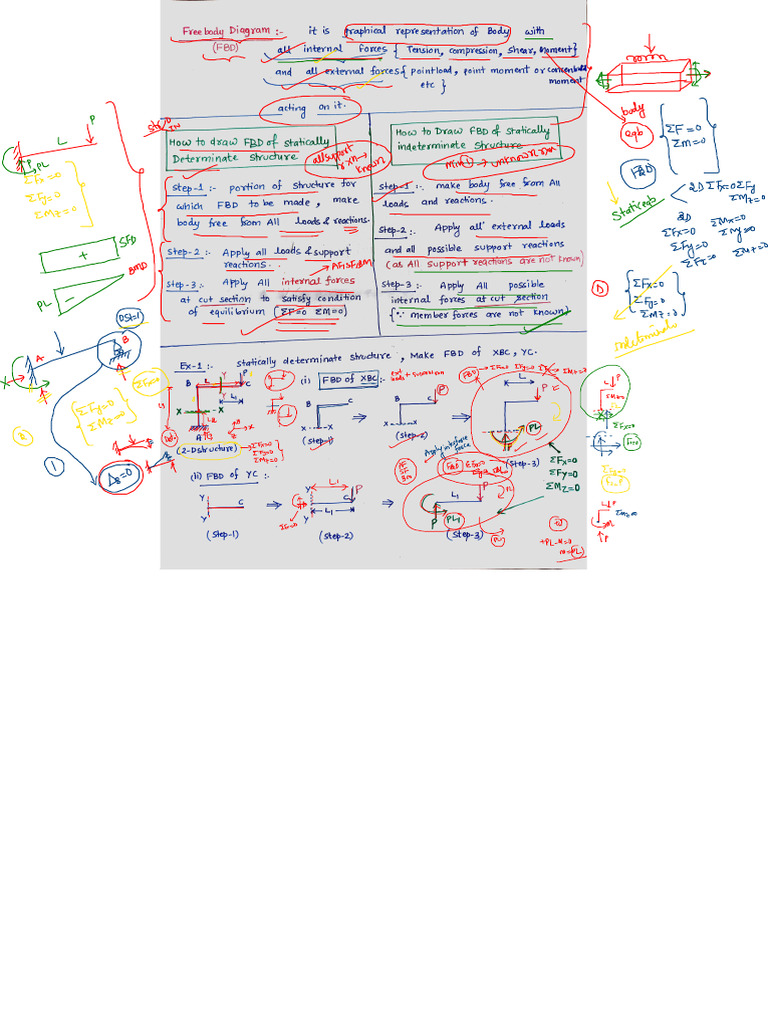 Free body Diagram :- it is graphical representation of Body with
(FBD) all internal forces { Tension, compression, shear, moment}
and all external forces { pointload, point moment or concentrated moment
etc }
acting on it.
How to draw FBD of statically
Determinate structure
all support
rxn →
known
Step-1 :- portion of structure for
which FBD to be made, make
body free from All loads & reactions.
Step-2 :- Apply all loads & support
reactions.
Step-3 :- Apply All internal forces
at cut section to satisfy condition
of equilibrium (ΣF=0 ΣM=0)
How to Draw FBD of statically
indeterminate structure
min① → unknown rxn
Step-1 :- make body free from All
loads and reactions.
Step-2 :- Apply all external loads
and all possible support reactions
(as All support reactions are not known)
Step-3 :- Apply All possible
internal forces at cut section
{∵ member forces are not known}
Ex-1 :- statically determinate structure, Make FBD of XBC, YC.
(i) FBD of XBC :-
B L Y P
C
L1
X X
A
(2-D structure)
ΣFx=0
ΣFy=0
ΣMz=0
B C
X X
(step-1)
B C
P
X X
(step-2)
Apply internal
force
FBD
L1
P
PL
P
(step-3)
ΣFx=0
ΣFy=0
ΣMz=0
(ii) FBD of YC :-
Y C
Y
(step-1)
L1
P
Y C
Y L1
(step-2)
FBD
L1 P
PL1
P
(step-3)
+PL-M=0
M=PL
L P
PL
ΣFx=0
ΣFy=0
ΣMz=0
+ SFD
PL - BMD
DSI=1
A B
X
ΣFx=0
ΣFy=0
ΣMz=0
②
①
ΔB=0
body
eqb
ΣF=0
ΣM=0
FBD
Static eqb
2D ΣFx=0 ΣFy
ΣMz=0
3D
ΣFx=0 ΣMx=0
ΣFy=0 ΣMy=0
ΣFz=0 ΣMz=0
①
ΣFx=0
ΣFy=0
ΣMz=0
indeterminate
L P
ΣFx=0
ΣM=0
P